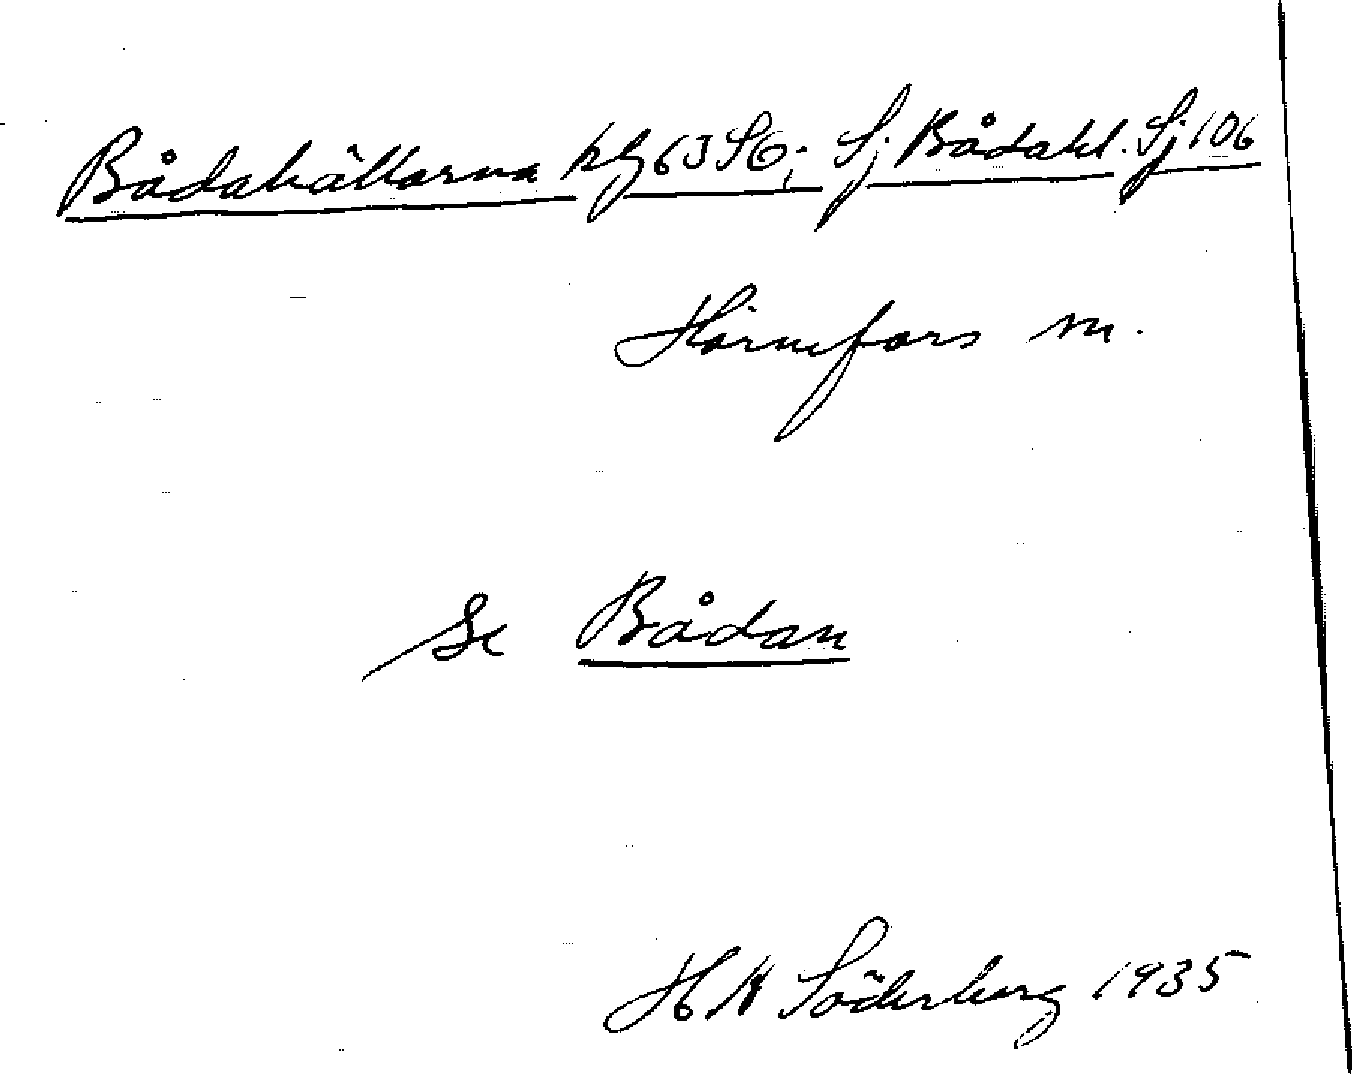 Bådahällarna kbl 63 SO; Sj Bådahl. Sj 106
Hörnefors m.
Se Bådan
H N Söderberg 1935